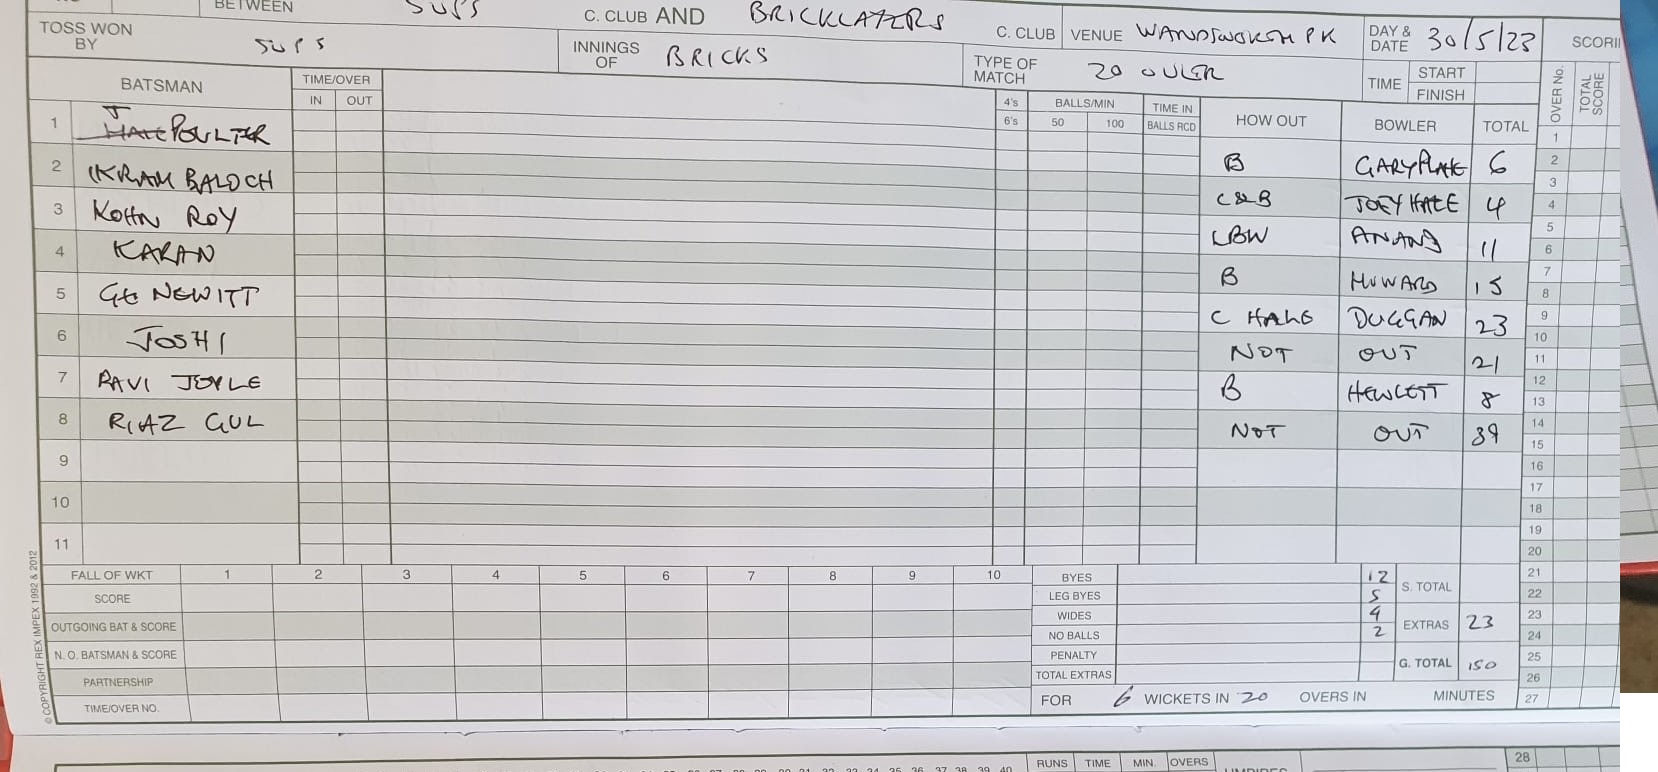 BETWEEN SUPS C. CLUB AND BRICKLAYERS C. CLUB VENUE WANDSWORTH PK DAY & DATE 30/5/23 SCORI
TOSS WON BY SUPS INNINGS OF BRICKS TYPE OF MATCH 20 OVER TIME START
FINISH
BATSMAN TIME/OVER IN OUT 4's 6's BALLS/MIN 50 100 TIME IN BALLS RCD HOW OUT BOWLER TOTAL OVER No. TOTAL SCORE
1 J POULTER B GARY PLAKE 6
2 IKRAM BALOCH C&B JOEY HALE 4
3 KOHN ROY LBW ANAND 11
4 KARAN B HOWARD 15
5 GE NEWITT C HALE DUGGAN 23
6 JOSHI NOT OUT 21
7 RAVI JOYLE B HEWLETT 8
8 RIAZ GUL NOT OUT 39
9
10
11
1
2
3
4
5
6
7
8
9
10
11
12
13
14
15
16
17
18
19
20
21
22
23
24
25
26
27
28
FALL OF WKT 1 2 3 4 5 6 7 8 9 10
SCORE
OUTGOING BAT & SCORE
N. O. BATSMAN & SCORE
PARTNERSHIP
TIME/OVER NO.
BYES 12 S. TOTAL
LEG BYES 5
WIDES 4 EXTRAS 23
NO BALLS 2
PENALTY G. TOTAL 150
TOTAL EXTRAS
FOR 6 WICKETS IN 20 OVERS IN MINUTES
© COPYRIGHT REX IMPEX 1992 & 2012
RUNS TIME MIN. OVERS